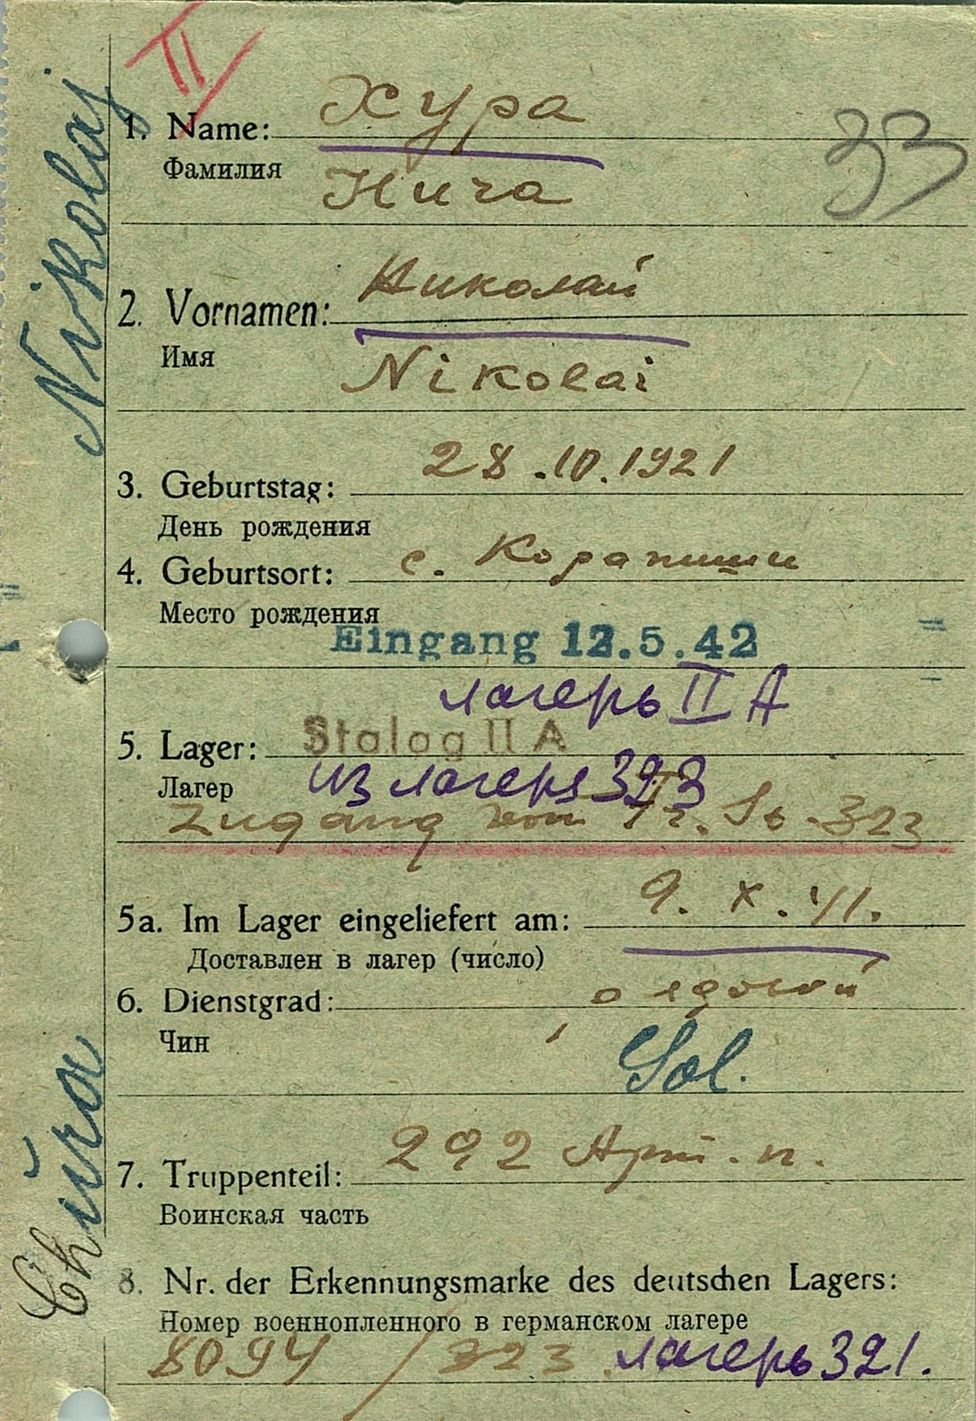 II
Nikolaj
Chŭra
33
Хура
1. Name:
Фамилия
Нича
Николай
2. Vornamen:
Имя
Nikolai
28.10.1921
3. Geburtstag:
День рождения
с. Корапиши
4. Geburtsort:
Место рождения
Eingang 12.5.42
лагерь II А
5. Lager: Stalag II A
Лагер из лагеря 323
Zugang vom Fr. St. 323
9. X. 41.
5a. Im Lager eingeliefert am:
Доставлен в лагер (число)
рядовой
6. Dienstgrad:
Чин
Sol.
292 Арт. п.
7. Truppenteil:
Воинская часть
8. Nr. der Erkennungsmarke des deutschen Lagers:
Номер военнопленного в германском лагере
8094 / 323 лагерь 321.